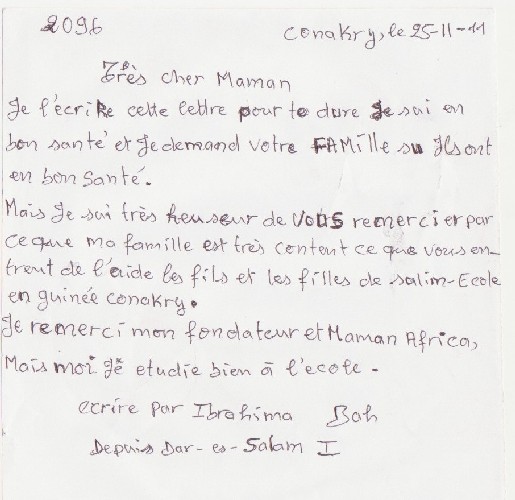 2096
Conakry, le 25-11-11
Très cher Maman
Je l'écrire cette lettre pour te dure Je sui en
bon santé et Je demand votre FAMille su Ils ont
en bon Santé.
Mais Je sui très heuseur de VOUS remercier par
ce que ma famille est très content ce que vous en-
trent de l'aide les fils et les filles de salim-Ecole
en guinée conakry.
Je remerci mon fondateur et Maman Africa,
Mais moi Je etudie bien à l'ecole -
ecrire par Ibrahima Bah
Depuis Dar-es-Salam I